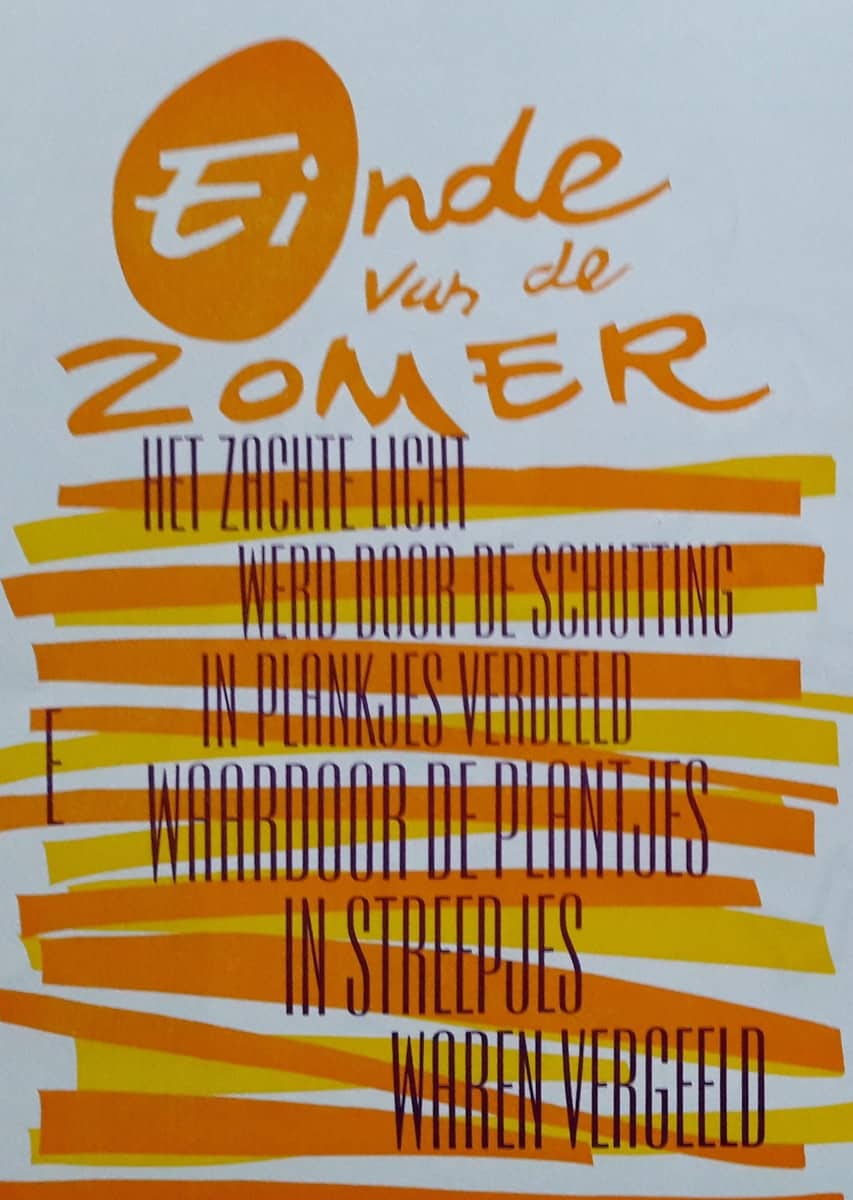 Einde
van de
ZOMER
HET ZACHTE LICHT
WERD DOOR DE SCHUTTING
IN PLANKJES VERDEELD
E
WAARDOOR DE PLANTJES
IN STREEPJES
WAREN VERGEELD